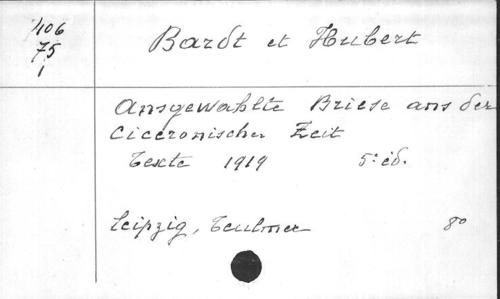 406
75
1
Bardt et Hubert
Ausgewählte Briefe aus der
Ciceronischen Zeit
texte 1919 5e éd.
Leipzig, Teubner 8°